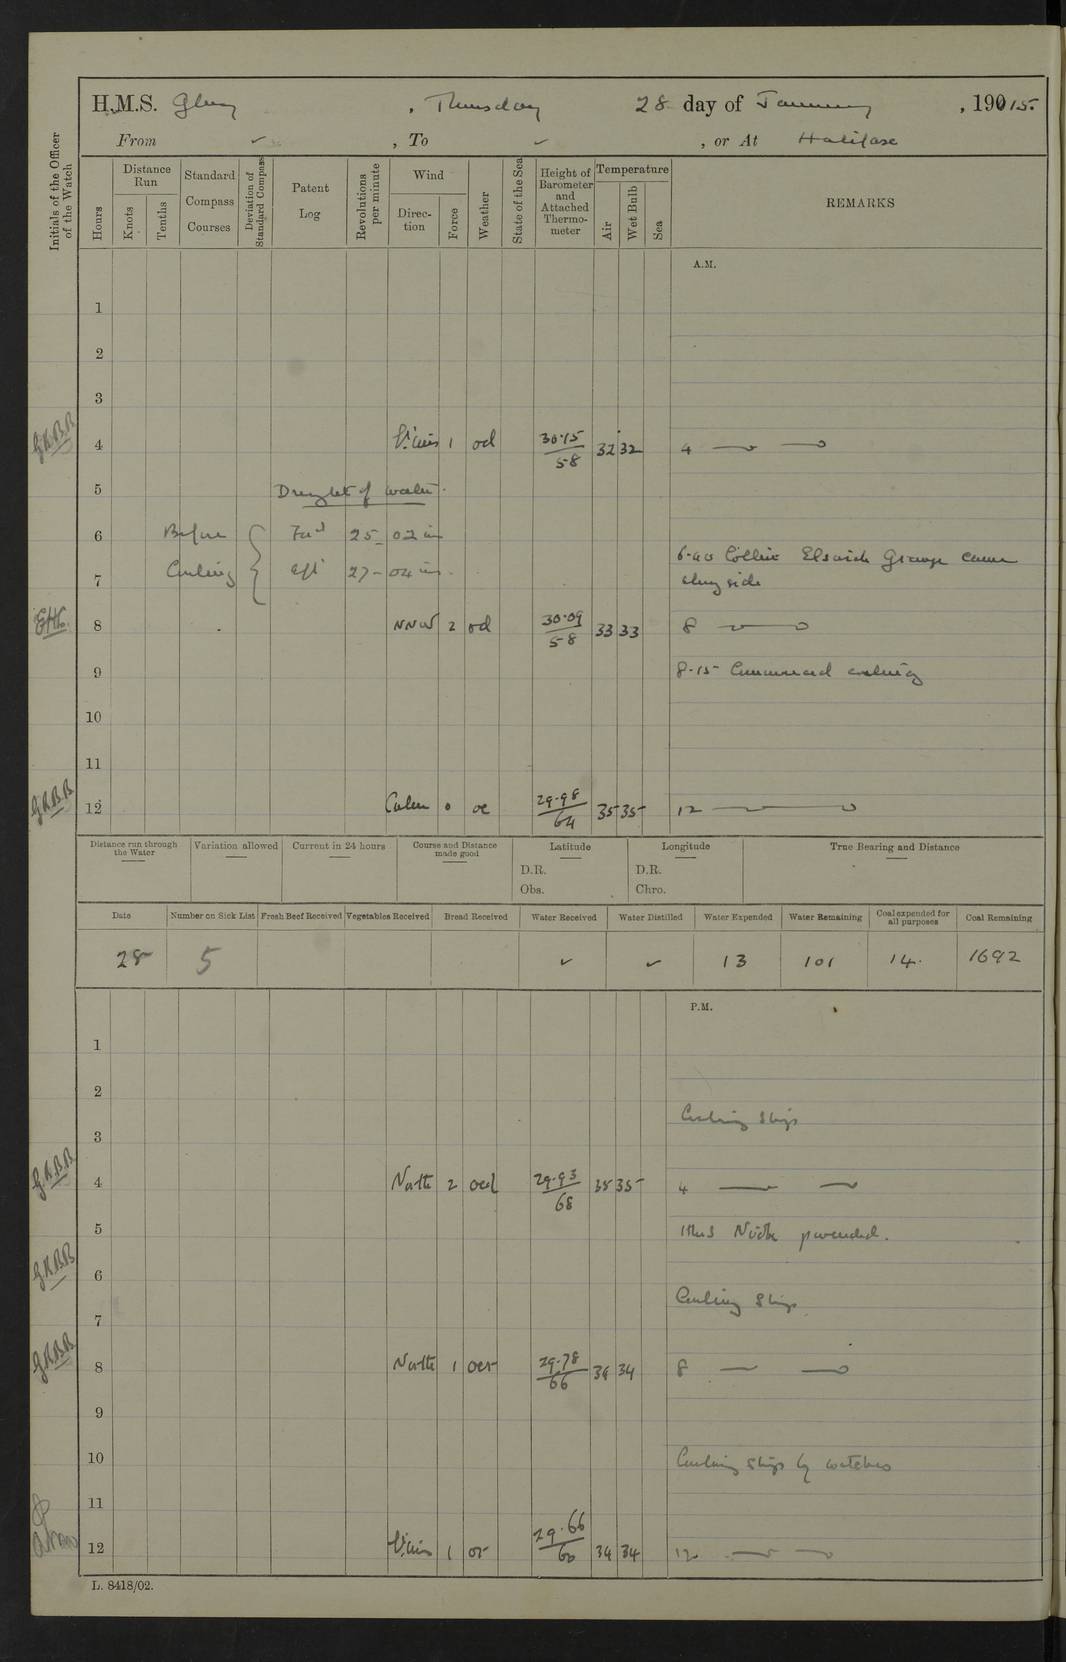 H.M.S. Glory , Thursday 28 day of January , 19015.
From ✓ , To ✓ , or At Halifax
Initials of the Officer of the Watch
Hours
Distance Run
Knots
Tenths
Standard Compass Courses
Deviation of Standard Compass
Patent Log
Revolutions per minute
Wind
Direction
Force
Weather
State of the Sea
Height of Barometer and Attached Thermometer
Temperature
Air
Wet Bulb
Sea
REMARKS
A.M.
1
2
3
4 1 od 30.15/58 32 32 4
5 Draught of water.
6 Before Ford 25 - 02 in
Coaling aft 27 - 04 in.
6.40 Collier Elswick Grange came
7 alongside
8 NNW 2 od 30.09/58 33 33 8
9 8.15 Commenced coaling
10
11
12 Calm 0 oc 29.98/64 35 35 12
Distance run through the Water
Variation allowed
Current in 24 hours
Course and Distance made good
Latitude
D.R.
Obs.
Longitude
D.R.
Chro.
True Bearing and Distance
Date Number on Sick List Fresh Beef Received Vegetables Received Bread Received Water Received Water Distilled Water Expended Water Remaining Coal expended for all purposes Coal Remaining
28 5 ✓ ✓ 13 101 14. 1692
P.M.
1
2
Coaling Ship
3
4 North 2 29.93/68 35 35 4
5 HMS Niobe proceeded.
6
Coaling Ship
7
8 North 1 29.78/66 34 34 8
9
10 Coaling Ship by watches
11
12 1 29.66/60 34 34 12
L. 8418/02.